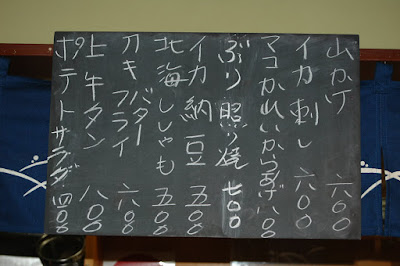 山かけ 六〇〇
イカ刺し 六〇〇
マコかれいからあげ 八〇〇
ぶり照り焼 七〇〇
イカ納豆 五〇〇
北海ししゃも 五〇〇
カキ バター フライ 六〇〇
上牛タン 八〇〇
ポテトサラダ 四〇〇